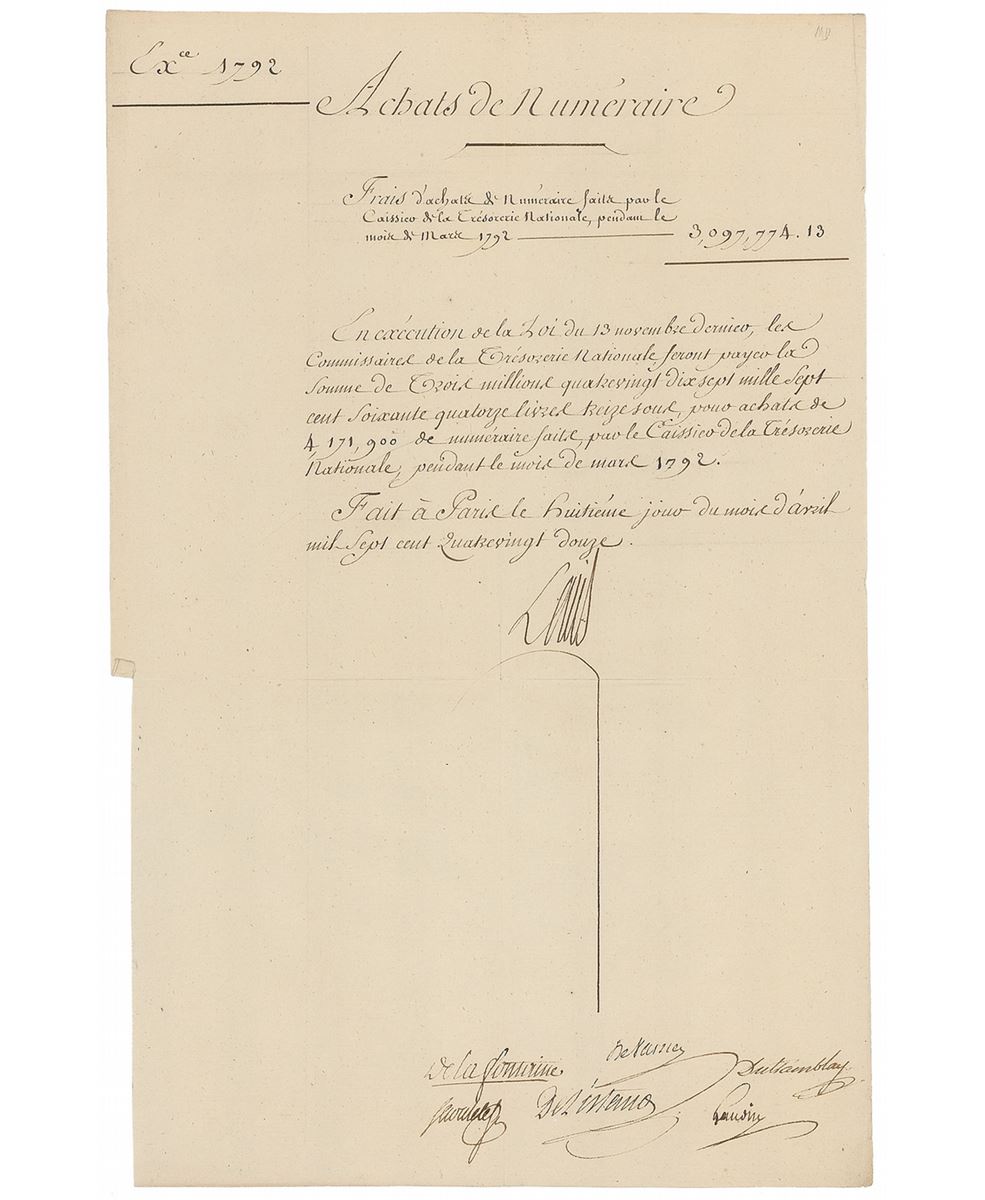 Ex.ce 1792
Achats de Numéraire
Frais d'achats de Numéraire faits par le
Caissier de la Trésorerie Nationale, pendant le
mois de Mars 1792 3,097,774.13
En exécution de la Loi du 13 novembre dernier, les
Commissaires de la Trésorerie Nationale, feront payer la
Somme de Trois millions quatrevingt dix sept mille Sept
cent Soixante quatorze livres treize sous, pour achats de
4,171,900 de numéraire faits, par le Caissier de la Trésorerie
Nationale, pendant le mois de mars 1792.
Fait à Paris le huitième jour du mois d'avril
mil Sept cent Quatrevingt douze.
Louis
De la fontaine
Dutramblay
De Lestang
Gaudin